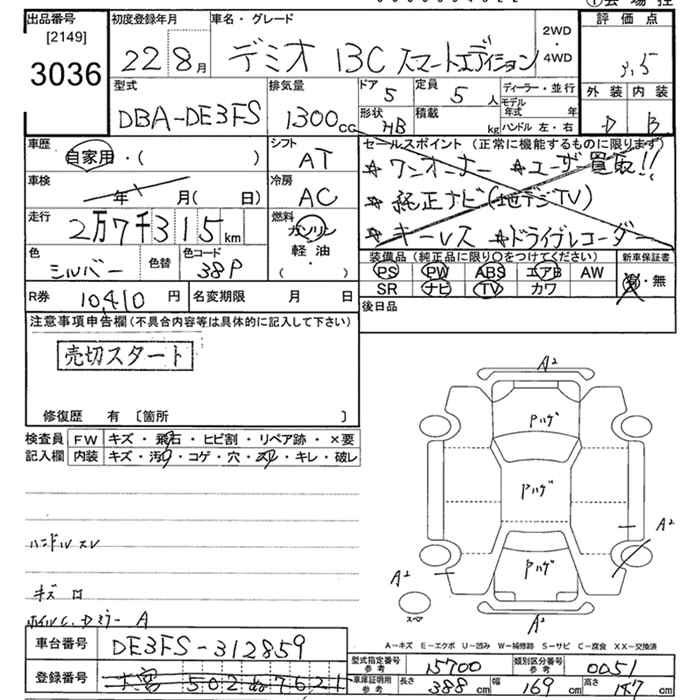 出品番号 初度登録年月 車名・グレード 評価点
[2149]
3036
22 8月 デミオ 13C スマートエディション 2WD・4WD 3.5
型式 排気量 ドア 5 定員 5人 ディーラー・並行 外装 内装
DBA-DE3FS 1300cc 形状 HB 積載 kg モデル年式 年 ハンドル 左・右 D B
車歴 自家用・( ) シフト AT
セールスポイント (正常に機能するものに限ります)
☆ワンオーナー ☆ユーザー買取!!
☆純正ナビ(地デジTV)
☆キーレス ☆ドライブレコーダー
車検 年 月( 日) 冷房 AC
走行 2万7千315km 燃料 ガソリン・軽油・( )
色 シルバー 色替 色コード 38P
装備品 (純正品に限り○をつけてください) 新車保証書
PS PW ABS エアB AW
SR ナビ TV カワ ・無
R券 10410円 名変期限 月 日 後日品
注意事項申告欄 (不具合内容等は具体的に記入して下さい)
売切スタート
修復歴 有 〔箇所 〕
検査員 FW キズ・飛石・ヒビ割・リペア跡・×要
記入欄 内装 キズ・汚・コゲ・穴・スレ・キレ・破レ
A2
Pハゲ
Pハゲ
Pハゲ
A2
A2
A2
スペア
ハンドルスレ
キズ
A
A-キズ E-エクボ U-凹み W-補修跡 S-サビ C-腐食 XX-交換済
車台番号 DE3FS-312859
型式指定番号 参考 15700 類別区分番号 参考 0051
登録番号 大宮 502 ぬ 7621
車庫証明用 参考 長さ 388cm 幅 169cm 高さ 147cm